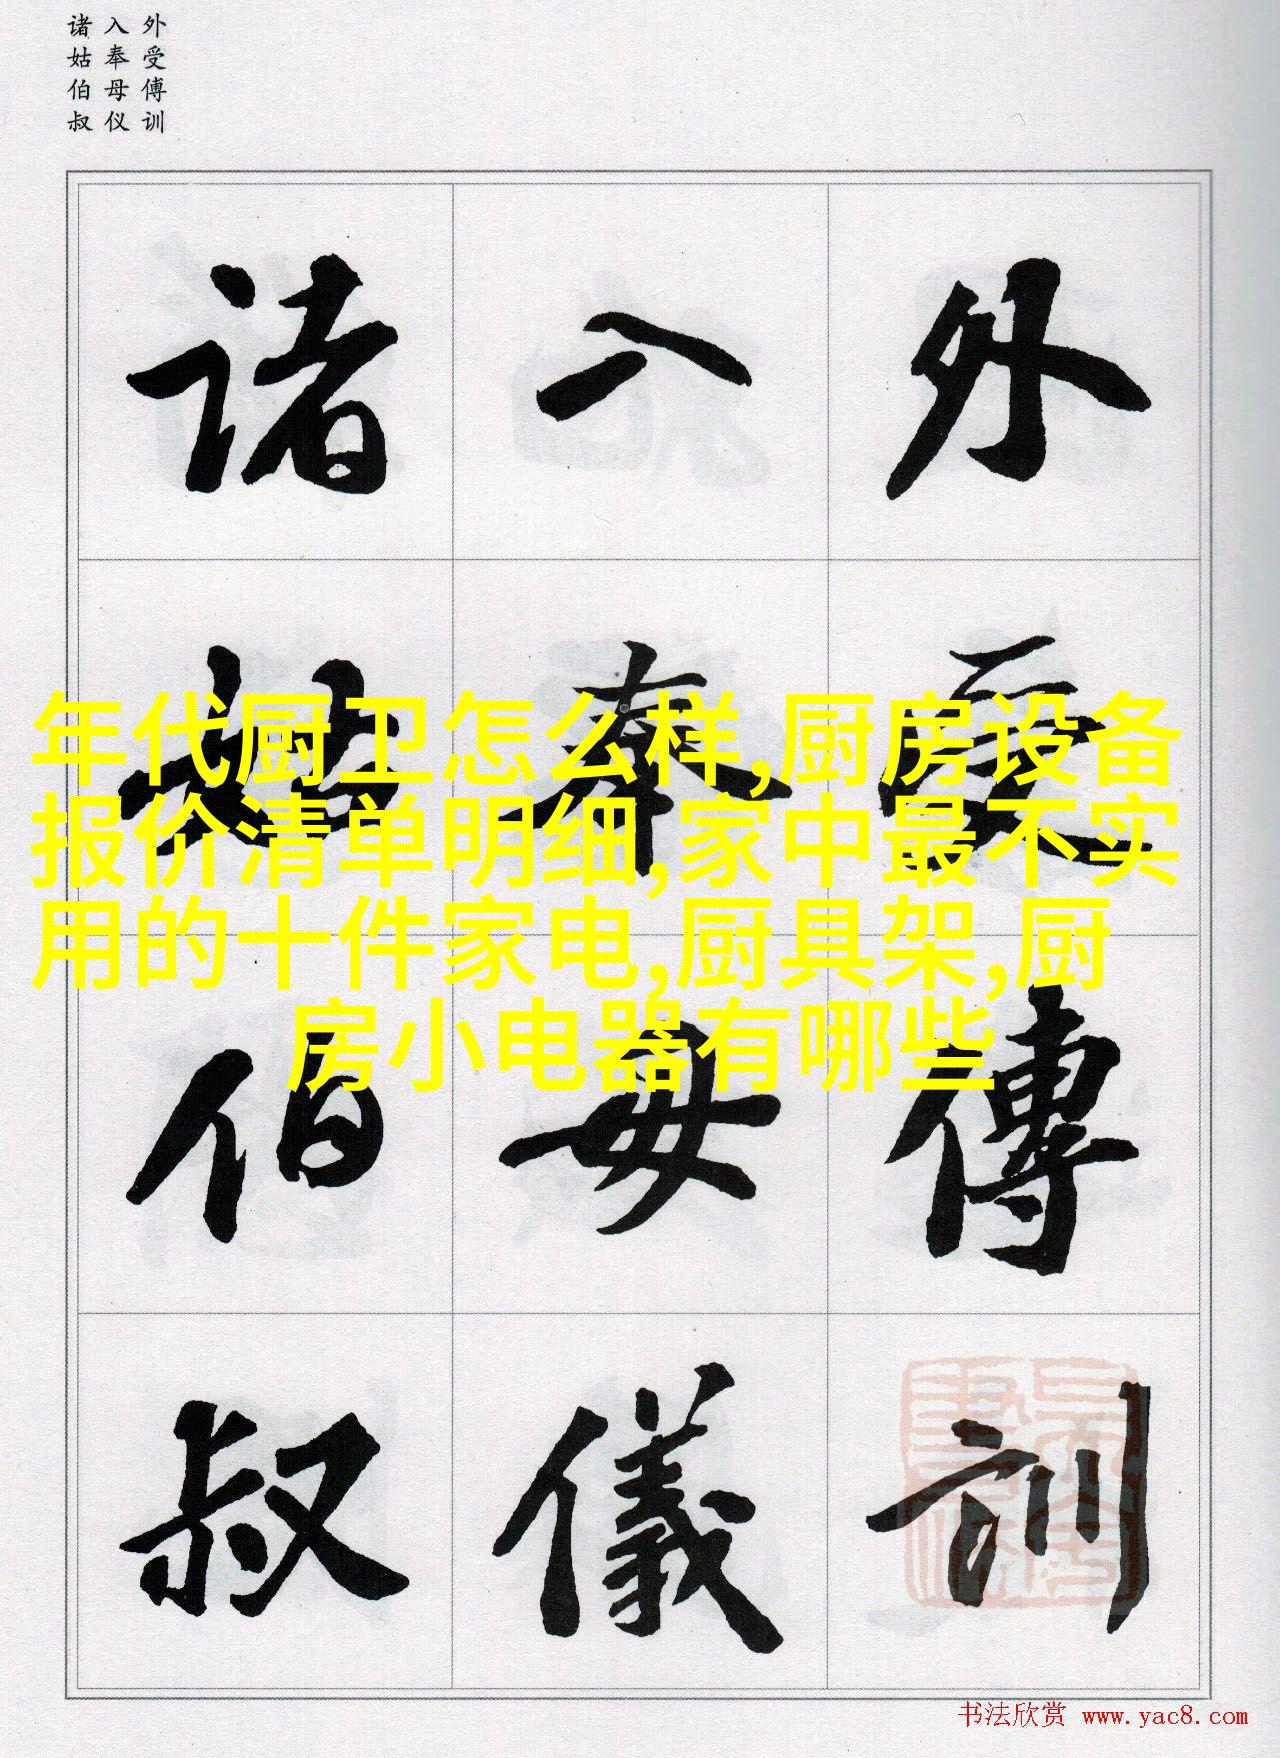 诸入外
姑奉受
伯母傅
叔仪训
诸入外
姑奉受
年代厨卫怎么样,厨房设备
报价清单明细,家中最不实
用的十件家电,厨具架,厨
房小电器有哪些
伯母傅
叔儀訓
书法欣赏 www.yac8.com